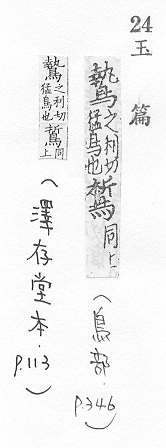 24
玉篇
鷙之利切猛鳥也 同上
(鳥部. p.346)
鷙之利切猛鳥也 同上
(澤存堂本. p.113)